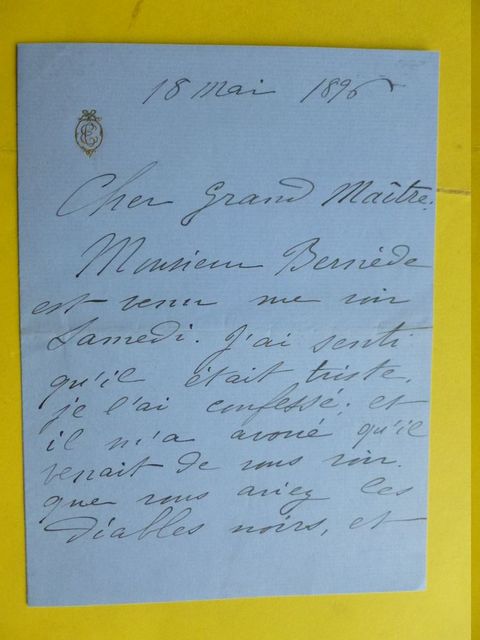 18 Mai 1896
Cher Grand Maître.
Monsieur Bernède
est venu me voir
Samedi. J'ai senti
qu'il était triste,
je l'ai confessé; et
il m'a avoué qu'il
venait de vous voir.
que vous aviez les
diables noirs, et